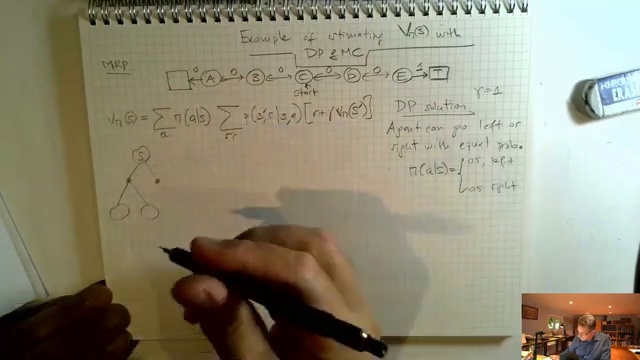 Example of estimating Vπ(s) with
DP & MC
MRP
0 A 0 B 0 C 0 D 0 E 1 T
start
Vπ(s) = Σ π(a|s) Σ p(s',r|s,a) [r + γ Vπ(s')]
a s',r
DP solution γ=1
Agent can go left or
right with equal prob.
π(a|s) = { 0.5, left
0.5 right
S
ERAS